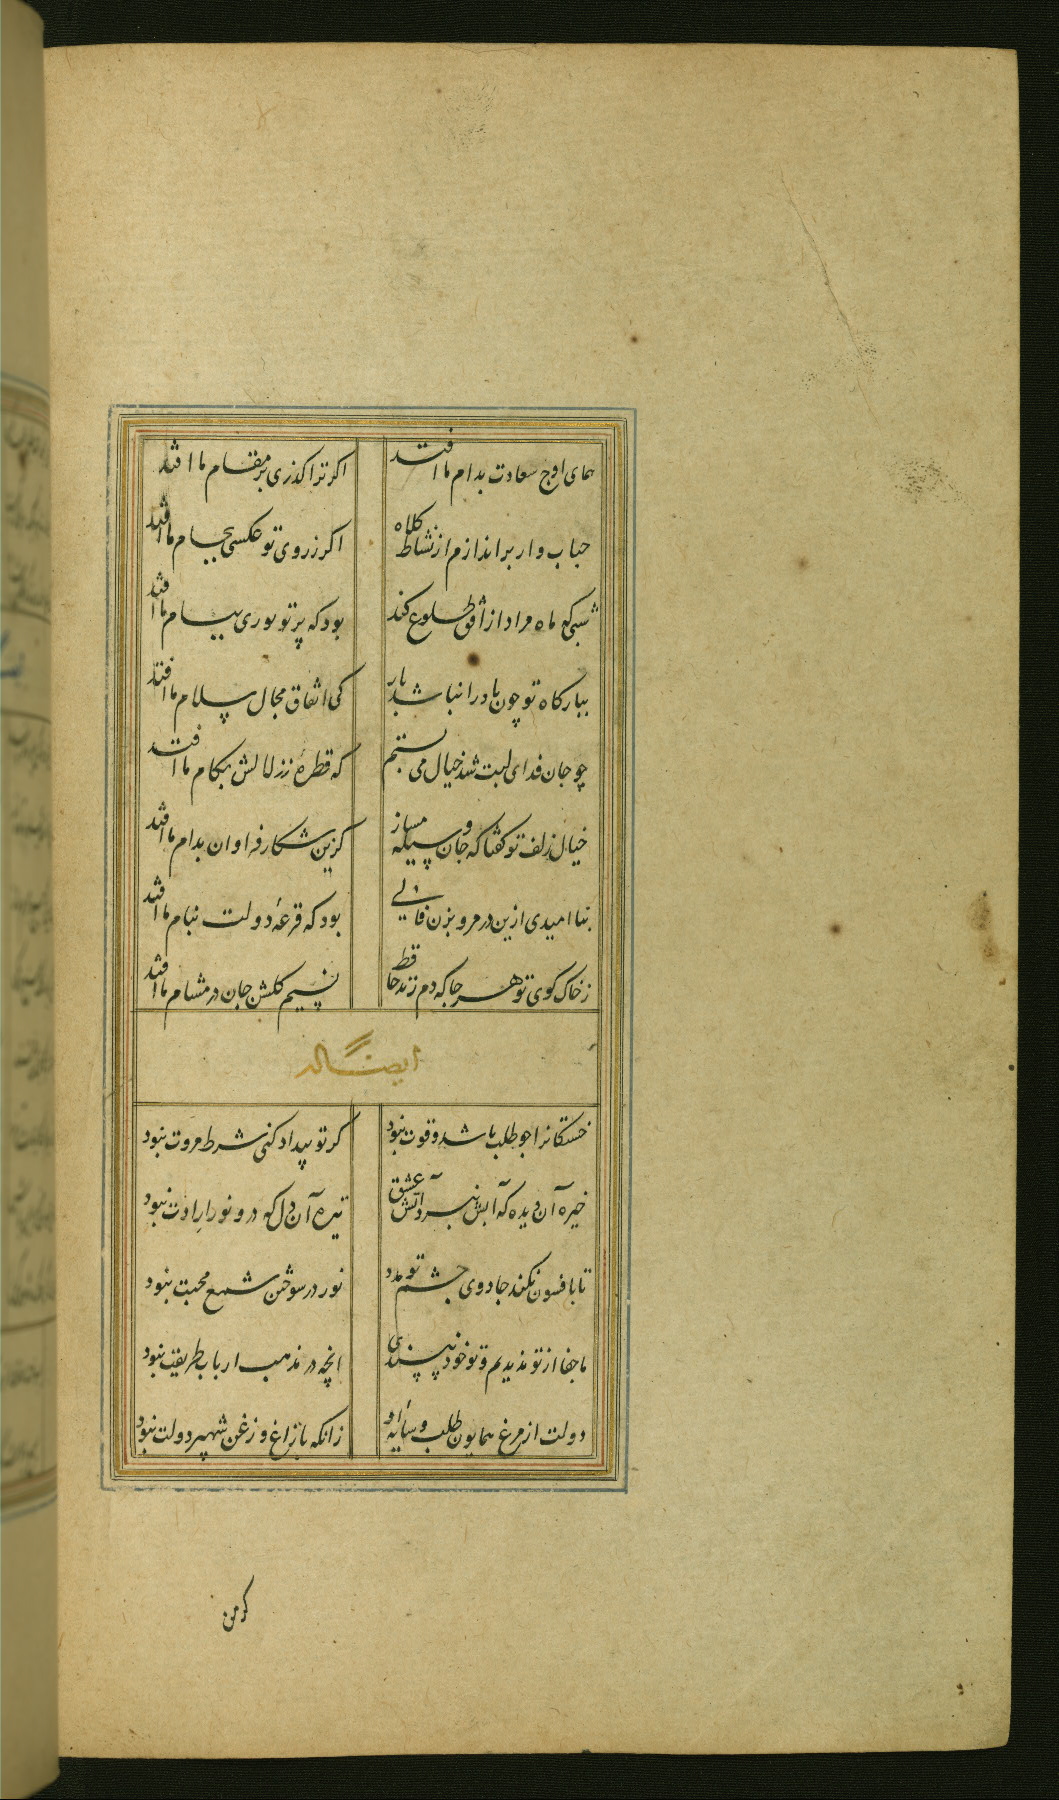 همای اوج سعادت بدام ما افتد
اکر ترا کذری بر مقام ما افتد
حباب وار براندازم از نشاط کلاه
اکر ز روی تو عکسی بجام ما افتد
شبی که ماه مراد از افق طلوع کند
بود که پرتو نوری ببام ما افتد
ببارکاه تو چون باد را نباشد بار
کی اتفاق مجال سلام ما افتد
چو جان فدای لبت شد خیال می بستم
که قطره ز زلالش بکام ما افتد
خیال زلف تو کفتا که جان وسیله مساز
کزین شکار فراوان بدام ما افتد
بنا امیدی ازین در مرو بزن فالی
بود که قرعهٔ دولت بنام ما افتد
ز خاک کوی تو هر جا که دم زند حافظ
نسیم کلشن جان در مشام ما افتد
ایضا له
خستکانرا جو طلب باشد و قوت نبود
کر تو بیداد کنی شرط مروت نبود
خیره آن دیده که آبش نبرد آتش عشق
تیره آن دل که درو نور ارادت نبود
تا بافسون نکند جادوی چشم تو مدد
نور در سوختن شمع محبت نبود
ما جفا از تو ندیدیم و تو خود نپسندی
انچه در مذهب ارباب طریقت نبود
دولت از مرغ همایون طلب و سایه او
زانکه با زاغ و زغن شهپر دولت نبود
کر من